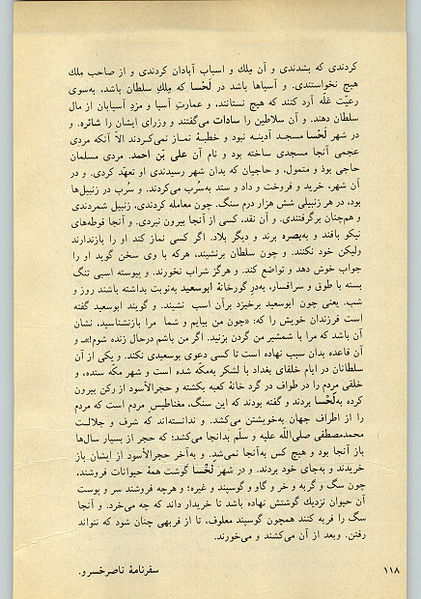 کردندی که بشدندی و آن مِلك و اسباب آبادان کردندی و از صاحب ملك
هیچ نخواستندی. و آسیاها باشد در لَحْسا که مِلكِ سلطان باشد، به‌سوی
رعیّت غلّه آرد کنند که هیچ نستانند، و عمارتِ آسیا و مزدِ آسیابان از مال
سلطان دهند. و آن سلاطین را سادات می‌گفتند و وزرای ایشان را شائره. و
در شهر لَحْسا مسجد آدینه نبود و خطبهٔ نماز نمی‌کردند الاّ آنکه مردی
عجمی آنجا مسجدی ساخته بود و نام آن علی بْن احمد. مردی مسلمان
حاجی بود و متمول، و حاجیان که بدان شهر رسیدندی او تعهّد کردی. و در
آن شهر، خرید و فروخت و داد و ستد به‌سُرب می‌کردند. و سُرب در زنبیل‌ها
بود، در هر زنبیلی شش هزار درم سنگ. چون معامله کردندی، زنبیل شمردندی
و همچنان برگرفتندی. و آن نقد، کسی از آنجا بیرون نبردی. و آنجا فوطه‌های
نیکو بافند و به‌بصره برند و دیگر بلاد. اگر کسی نماز کند او را بازندارند
ولیکن خود نکنند. و چون سلطان برنشیند، هرکه با وی سخن گوید او را
جواب خوش دهد و تواضع کند. و هرگز شراب نخورند. و پیوسته اسبی تنگ
بسته با طوق و سرافسار، به‌درِ گورخانهٔ ابوسعید به‌نوبت بداشته باشند روز و
شب، یعنی چون ابوسعید برخیزد برآن اسب نشیند. و گویند ابوسعید گفته
است فرزندان خویش را که: «چون من بیایم و شما مرا بازنشناسید، نشان
آن باشد که مرا با شمشیر من گردن بزنید. اگر من باشم درحال زنده شوم!»ـ و
آن قاعده بدان سبب نهاده است تا کسی دعوی بوسعیدی نکند. و یکی از آن
سلطانان در ایام خلفای بغداد با لشکر به‌مکّه شده است و شهر مکّه ستده، و
خلقی مردم را در طواف در گرد خانهٔ کعبه بکشته و حجرالأسود از رکن بیرون
کرده به‌لَحْسا بردند و گفته بودند که این سنگ، مغناطیس مردم است که مردم
را از اطراف جهان به‌خویشتن می‌کشد. و ندانسته‌اند که شرف و جلالت
محمدمصطفی صلی‌اللّه علیه و سلّم بدانجا می‌کشد؛ که حجر از بسیار سال‌ها
باز آنجا بود و هیچ کس به‌آنجا نمی‌شد. و به‌آخر حجرالأسود از ایشان باز
خریدند و به‌جای خود بردند. و در شهر لَحْسا گوشت همهٔ حیوانات فروشند،
چون سگ و گربه و خر و گاو و گوسپند و غیره؛ و هرچه فروشند سر و پوست
آن حیوان نزدیك گوشتش نهاده باشد تا خریدار داند که چه می‌خرد. و آنجا
سگ را فربه کنند همچون گوسپند معلوف، تا از فربهی چنان شود که نتواند
رفتن. وبعد از آن می‌کشند و می‌خورند.
۱۱۸ سفرنامهٔ ناصرخسرو.